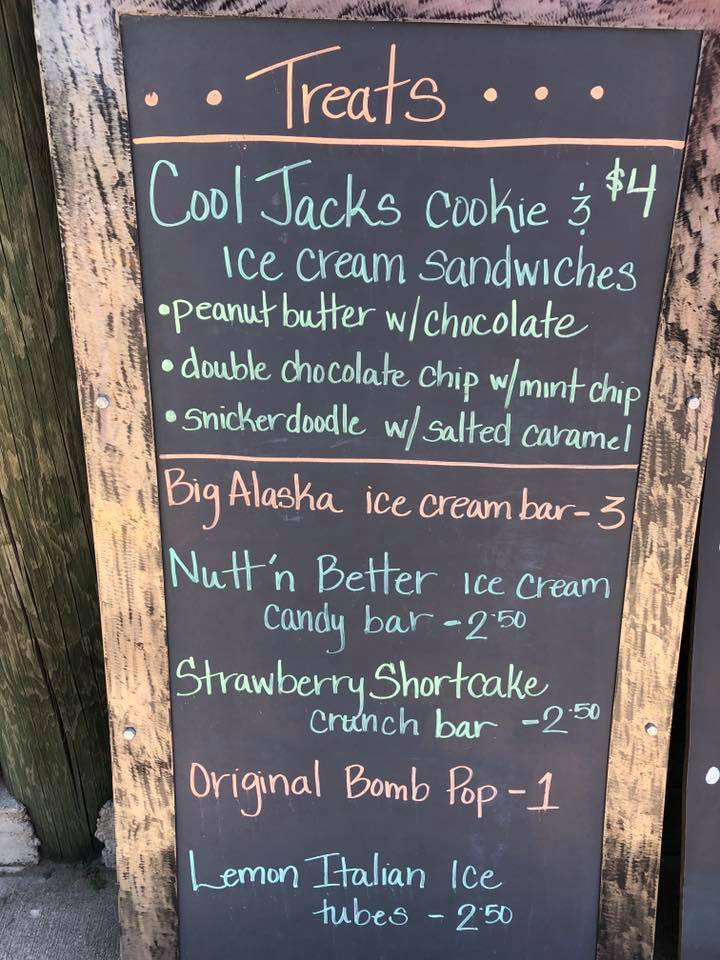 . . Treats . . .
Cool Jacks cookie & $4
ice cream sandwiches
•peanut butter w/chocolate
•double chocolate chip w/mint chip
•snickerdoodle w/salted caramel
Big Alaska ice cream bar-3
Nutt'n Better ice cream
candy bar -2.50
Strawberry Shortcake
crunch bar -2.50
Original Bomb Pop-1
Lemon Italian Ice
tubes - 2.50